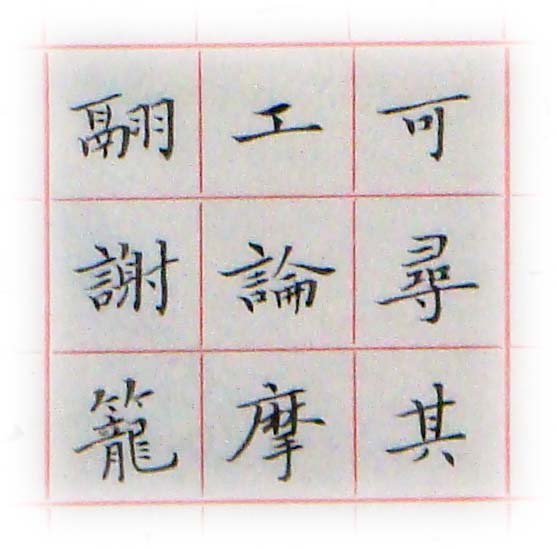 可尋其
工論摩
翮謝籠